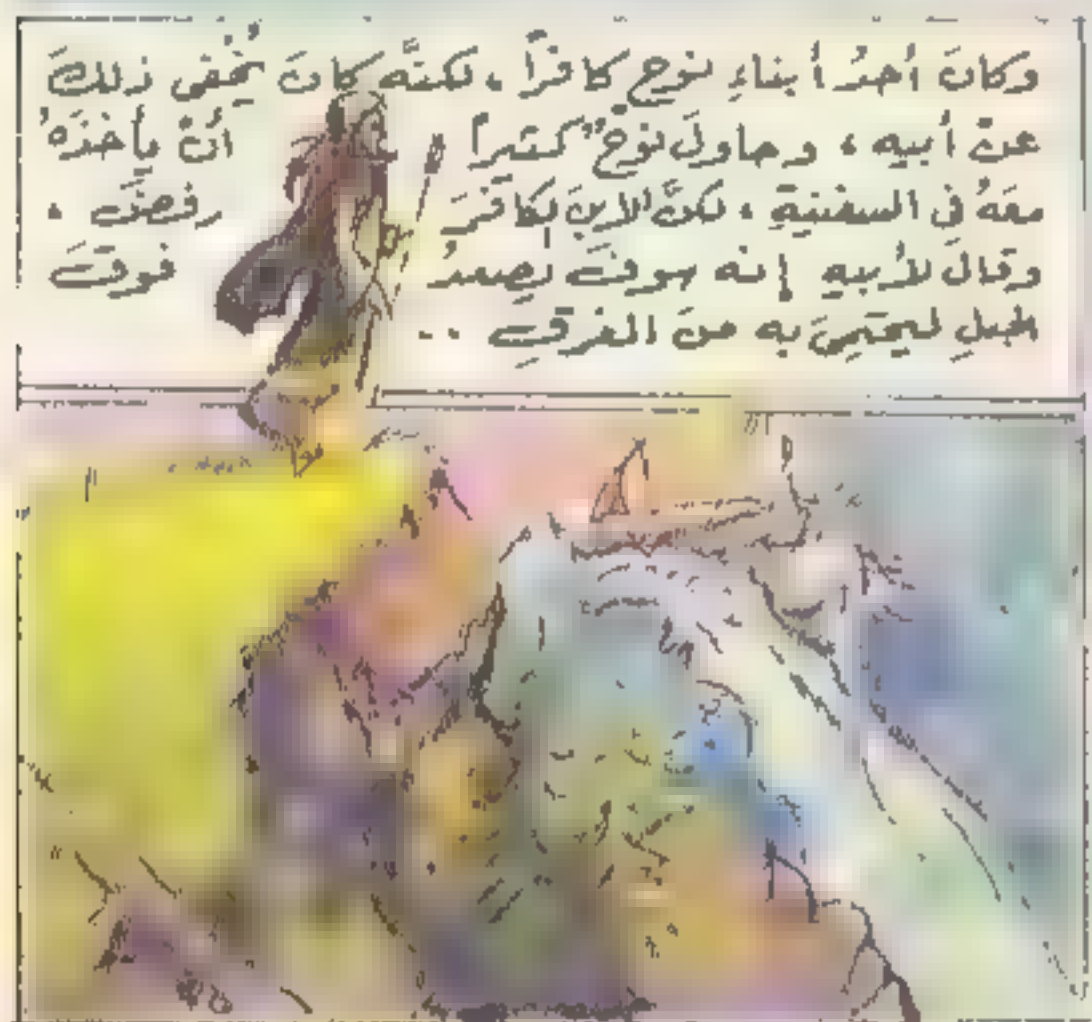 وكانَ أحدُ أبناءِ نوحٍ كافرًا ، لكنَّه كانَ يُخْفِى ذلكَ
عنْ أبيهِ ، وحاولَ نوحٌ كثيرًا أنْ يأخذَهُ
معَهُ فى السفينةِ ، لكنَّ الابنَ الكافرَ رفضَ ،
وقالَ لأبيهِ إنه سوفَ يصعدُ فوقَ
الجبلِ ليحتمِىَ به منَ الغرقِ ..